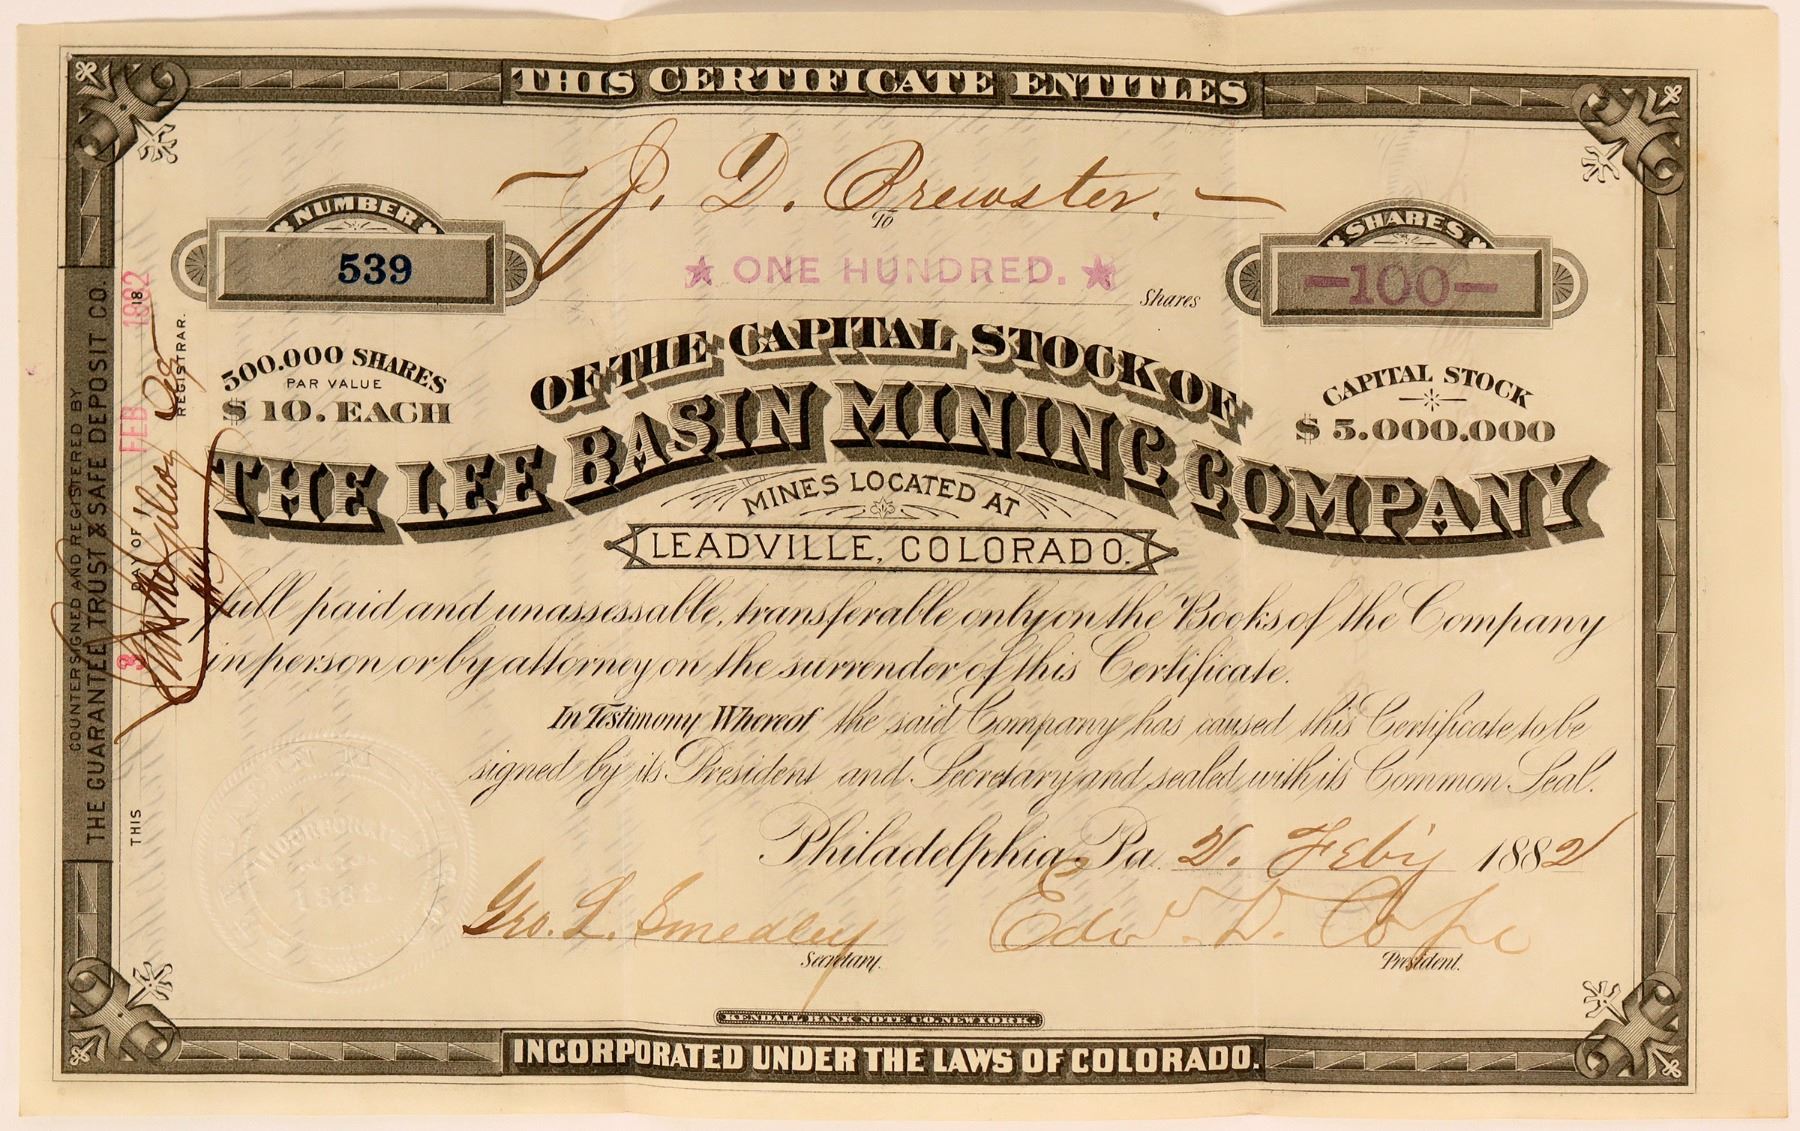 THIS CERTIFICATE ENTITLES
J. D. Brewster.
To
NUMBER
539
★ ONE HUNDRED. ★
Shares
SHARES
—100—
500.000 SHARES
PAR VALUE
$ 10. EACH
OF THE CAPITAL STOCK OF
CAPITAL STOCK
$ 5.000.000
THE LEE BASIN MINING COMPANY
MINES LOCATED AT
LEADVILLE, COLORADO.
full paid and unassessable, transferable only on the Books of the Company
in person or by attorney on the surrender of this Certificate.
In Testimony Whereof the said Company has caused this Certificate to be
signed by its President and Secretary and sealed with its Common Seal.
Philadelphia, Pa. 2. Feb'y 1882
Geo. L. Smedley
Secretary.
Edw. D. Cope
President.
KENDALL BANK NOTE CO. NEW YORK.
INCORPORATED UNDER THE LAWS OF COLORADO.
COUNTERSIGNED AND REGISTERED BY
THE GUARANTEE TRUST & SAFE DEPOSIT CO.
THIS 3 DAY OF FEB 1882 18
REGISTRAR.
INCORPORATED
1882.